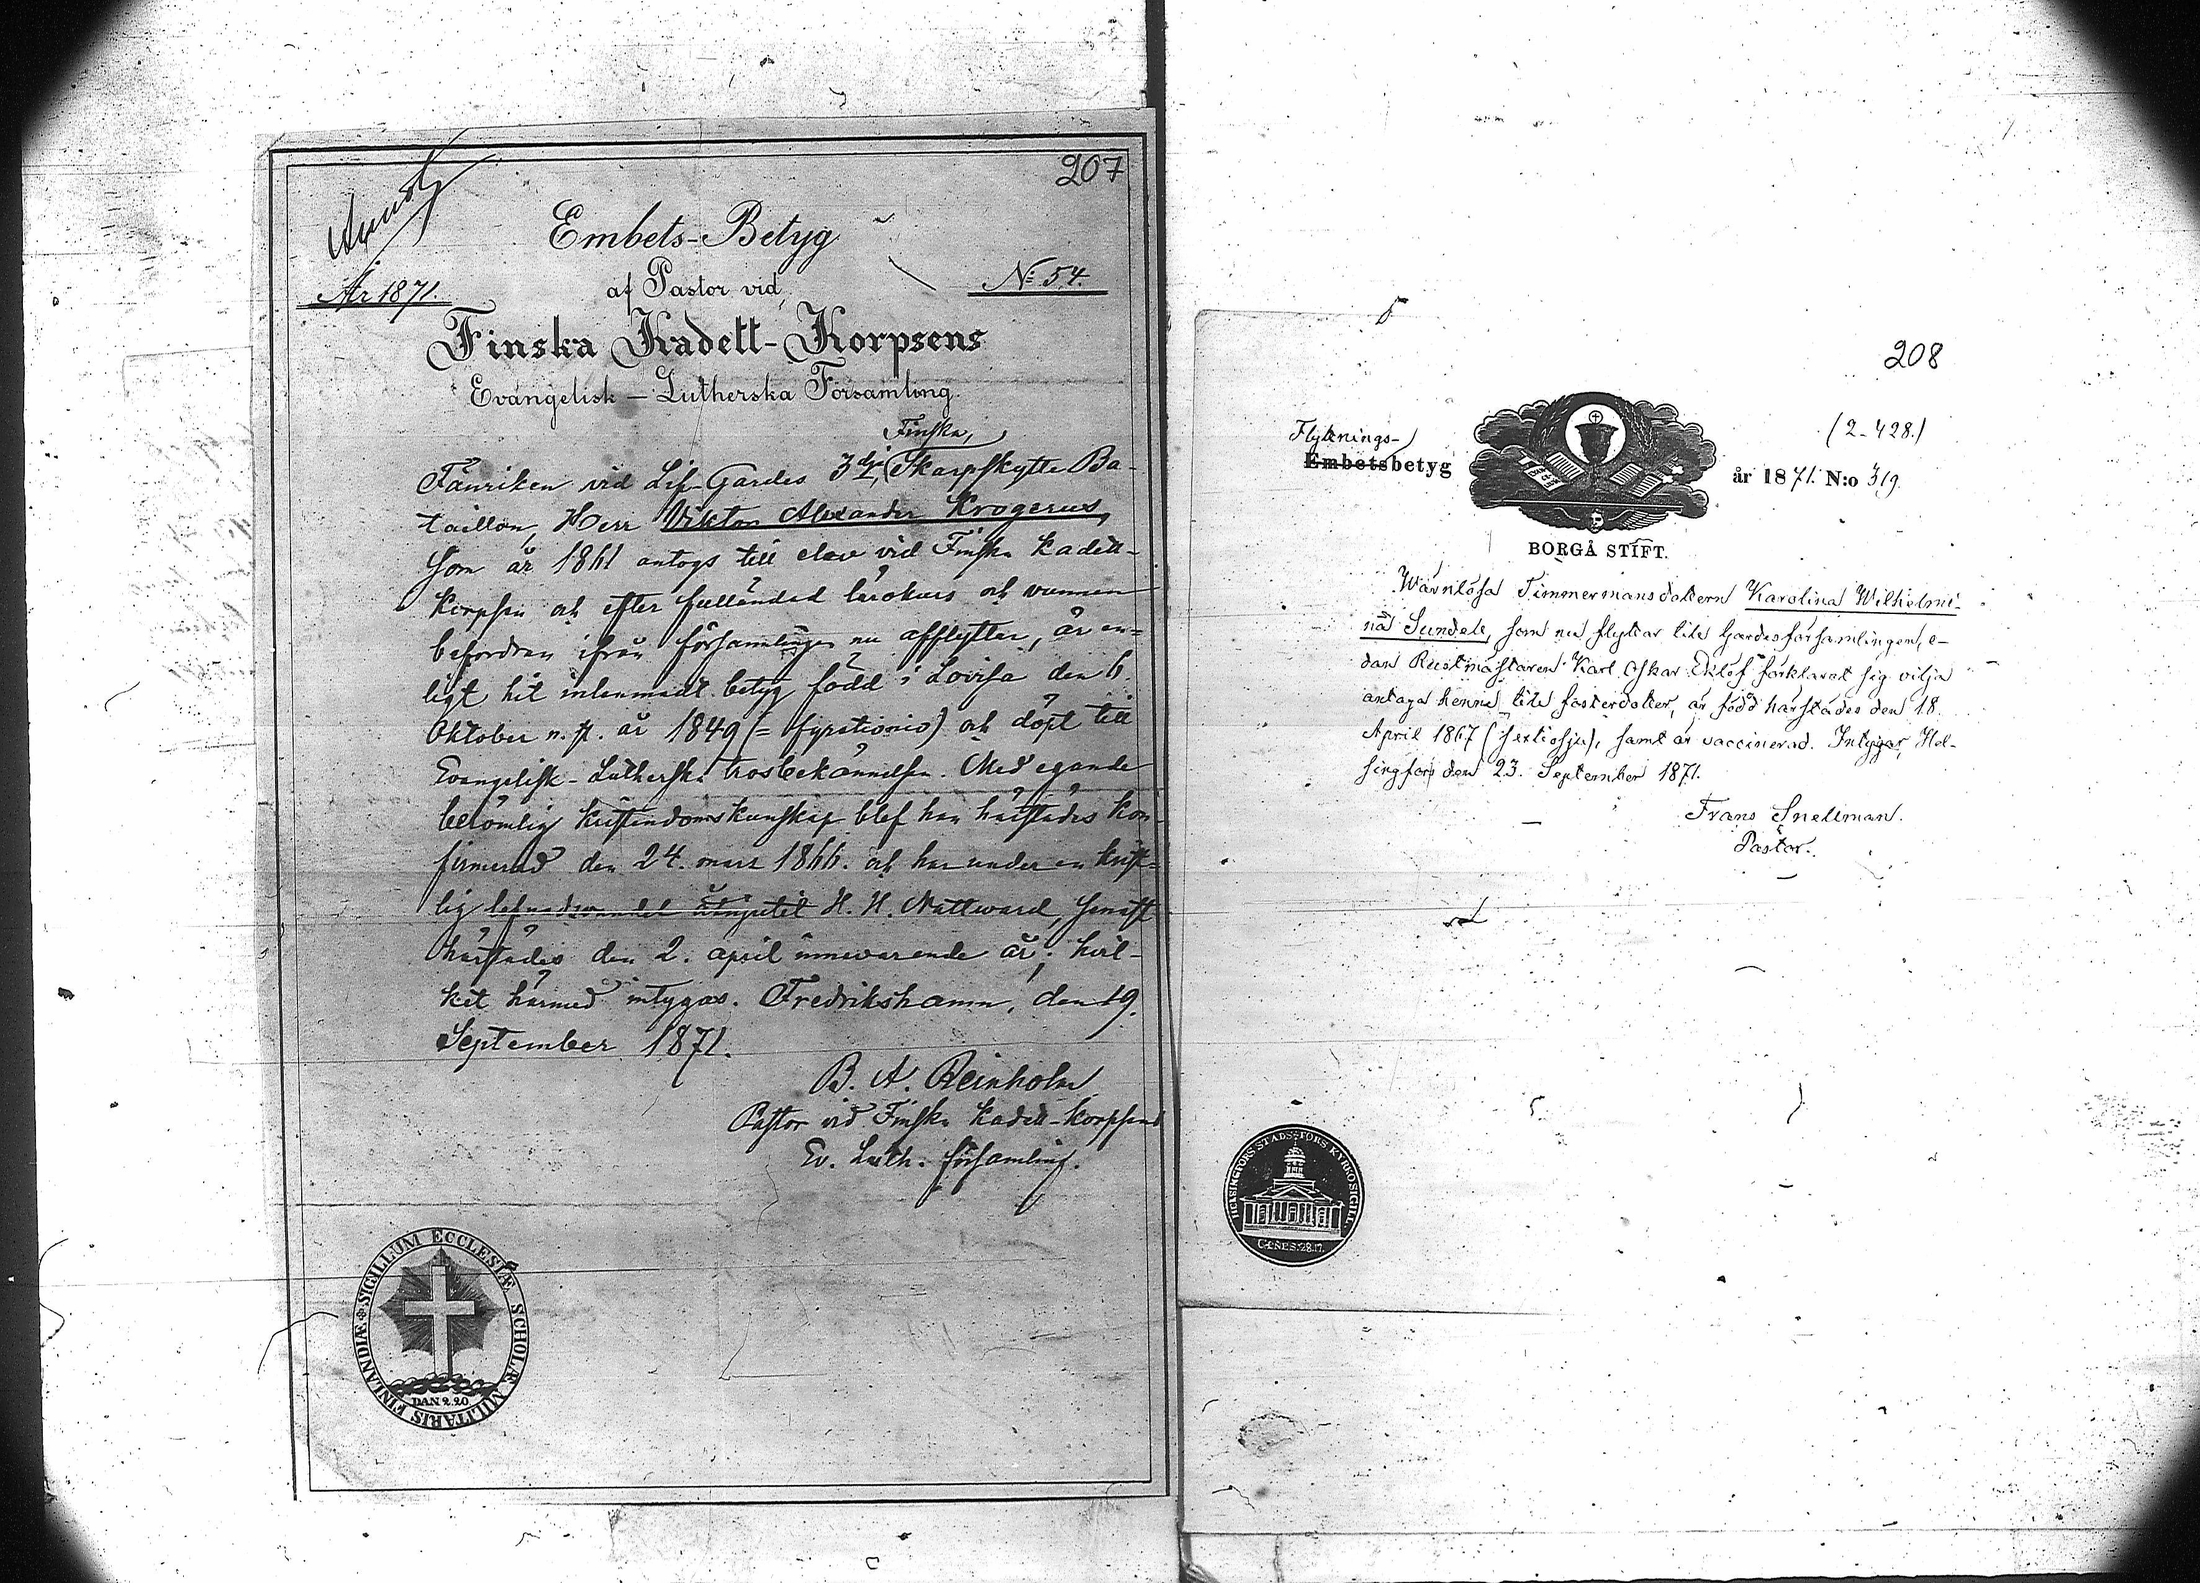 207
Embets-Betyg
af Pastor vid
År 1871.
No 54.
Finska Kadett-Korpsens
Evangelisk-Lutherska Församling.
Finska,
Fänriken vid Lif-Gardes 3dje Skarpskytte Ba-
taillon, Herr Viktor Alexander Krogerus,
som år 1861 antogs till elev vid Finska Kadett-
Korpsen och efter fulländad lärokurs och vunnen
befordran ifrån församlingen nu afflyttar, är en-
ligt hit inlemnadt betyg född i Lovisa den 6.
Oktober n. st. år 1849 (= fyrationio) och döpt till
Evangelisk-Lutherska trosbekännelsen. Med egande
berömlig kristendomskunskap blef han härstädes kon-
firmerad den 24. mars 1866. och har under en krist-
lig lefnadsvandel H. H. Nattward, senast
härstädes den 2. april innevarande år; hvil-
ket härmed intygas. Fredrikshamn, den 19.
September 1871.
B. A. Reinholm
Pastor vid Finska Kadett-Korpsens
Ev. Luth. församling.
SIGILLUM ECCLESIÆ SCHOLÆ MILITARIS FINLANDIÆ
DAN 2.20
208
(2-428.)
Flyttnings-
Embetsbetyg
år 1871. N:o 319.
BORGÅ STIFT.
Wärnlösa Timmermansdottern Karolina Wilhelmi-
na Sundell, som nu flyttar till Gardesförsamlingen, e-
dan Rustmästaren Karl Oskar Edlöf förklarat sig vilja
antaga henne till fosterdotter, är född härstädes den 18.
April 1867 (sextiosju), samt är vaccinerad. Intygar, Hel-
singfors den 23. September 1871.
Frans Snellman.
Pastor.
HELSINGFORS STADS FÖRS. KYRKOSIGILL.
GENES: 28.17.